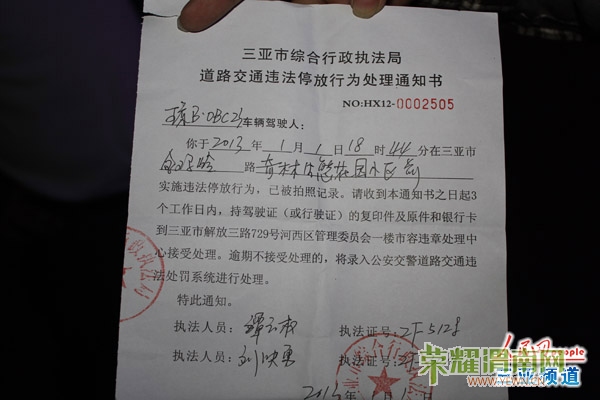 三亚市综合行政执法局
道路交通违法停放行为处理通知书
NO:HX12-0002505
琼B·0BC23车辆驾驶人：
你于2013年1月1日18时44分在三亚市
路 花园小区前
实施违法停放行为，已被拍照记录。请收到本通知书之日起3
个工作日内，持驾驶证（或行驶证）的复印件及原件和银行卡
到三亚市解放三路729号河西区管理委员会一楼市容违章处理中
心接受处理。逾期不接受处理的，将录入公安交警道路交通违
法处罚系统进行处理。
特此通知。
执法人员： 执法证号：ZF5128
执法人员：刘映勇 执法证号：
2013 1 1
人民网
people
三亚频道
荣耀渭南网